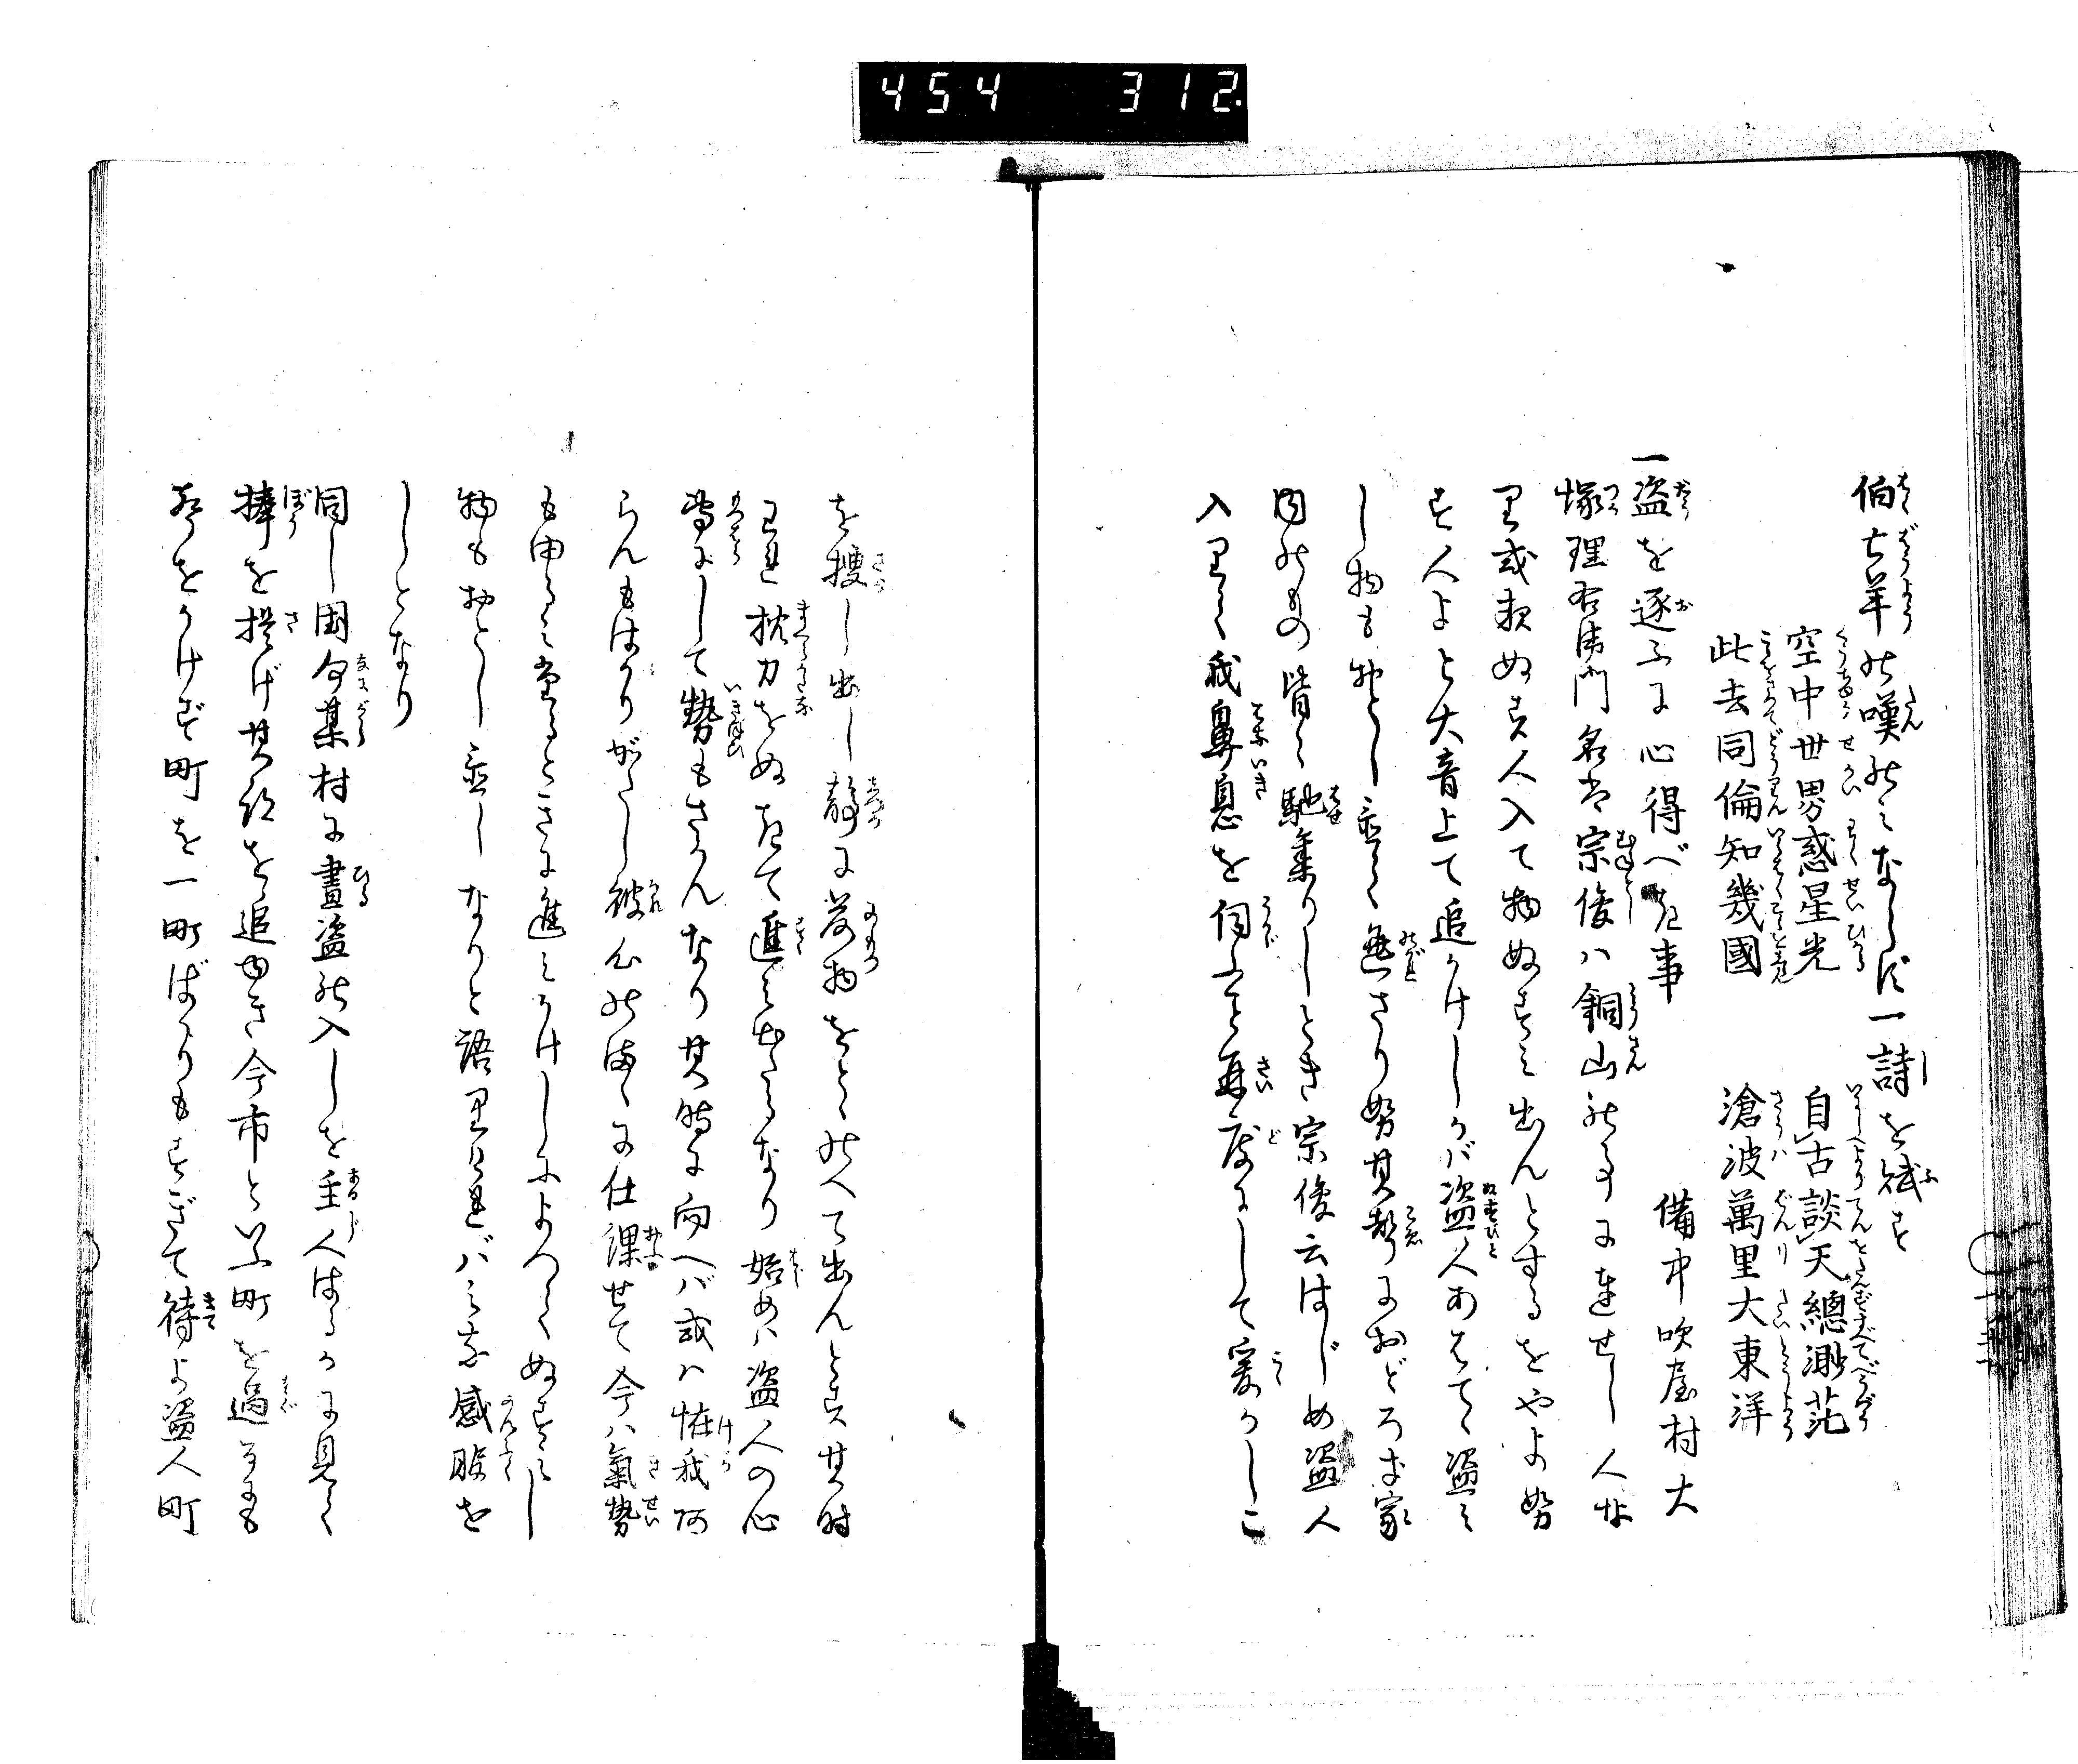 454 312
伯亡羊の嘆のみならず一詩を賦す
空中世界惑星光 自古談天總渺茫
此去同倫知幾國 滄波萬里大東洋
一盗を逐ふに心得べき事 備中吹屋村大
塚理右衛門名は宗俊ハ銅山のことに達せし人な
り或夜ぬす人入て物ぬすみ出んとするをやよ
す人よと大音上て追かけしかバ盗人あはてゝ盗み
し物もおとし置て逃さり其聲におどろき家
内のもの皆々馳集りしとき宗俊云はじめ盗人
入りて我鼻息を伺ふこと再度にして爰かしこ
を捜し出し静に荷物をとゝのへて出んとす其時
われ枕刀をぬきて進みたるなり始めハ盗人の心
専にして勢もさかんなり其時に向へバ或ハ怪我
らんもはかりがたし彼心のまゝに仕課せて今ハ氣勢
もゆるみ當るときに進みかけしによつてぬすみし
物もおとし置しなりと語りければみな感服せ
しとなり
同し国令某村に晝盗の入しを主人はるかに見て
捧を提げ其跡を追ゆき今市といふ町を過るにも
聲をかけず町を一町ばかりもすぎて待よ盗人町